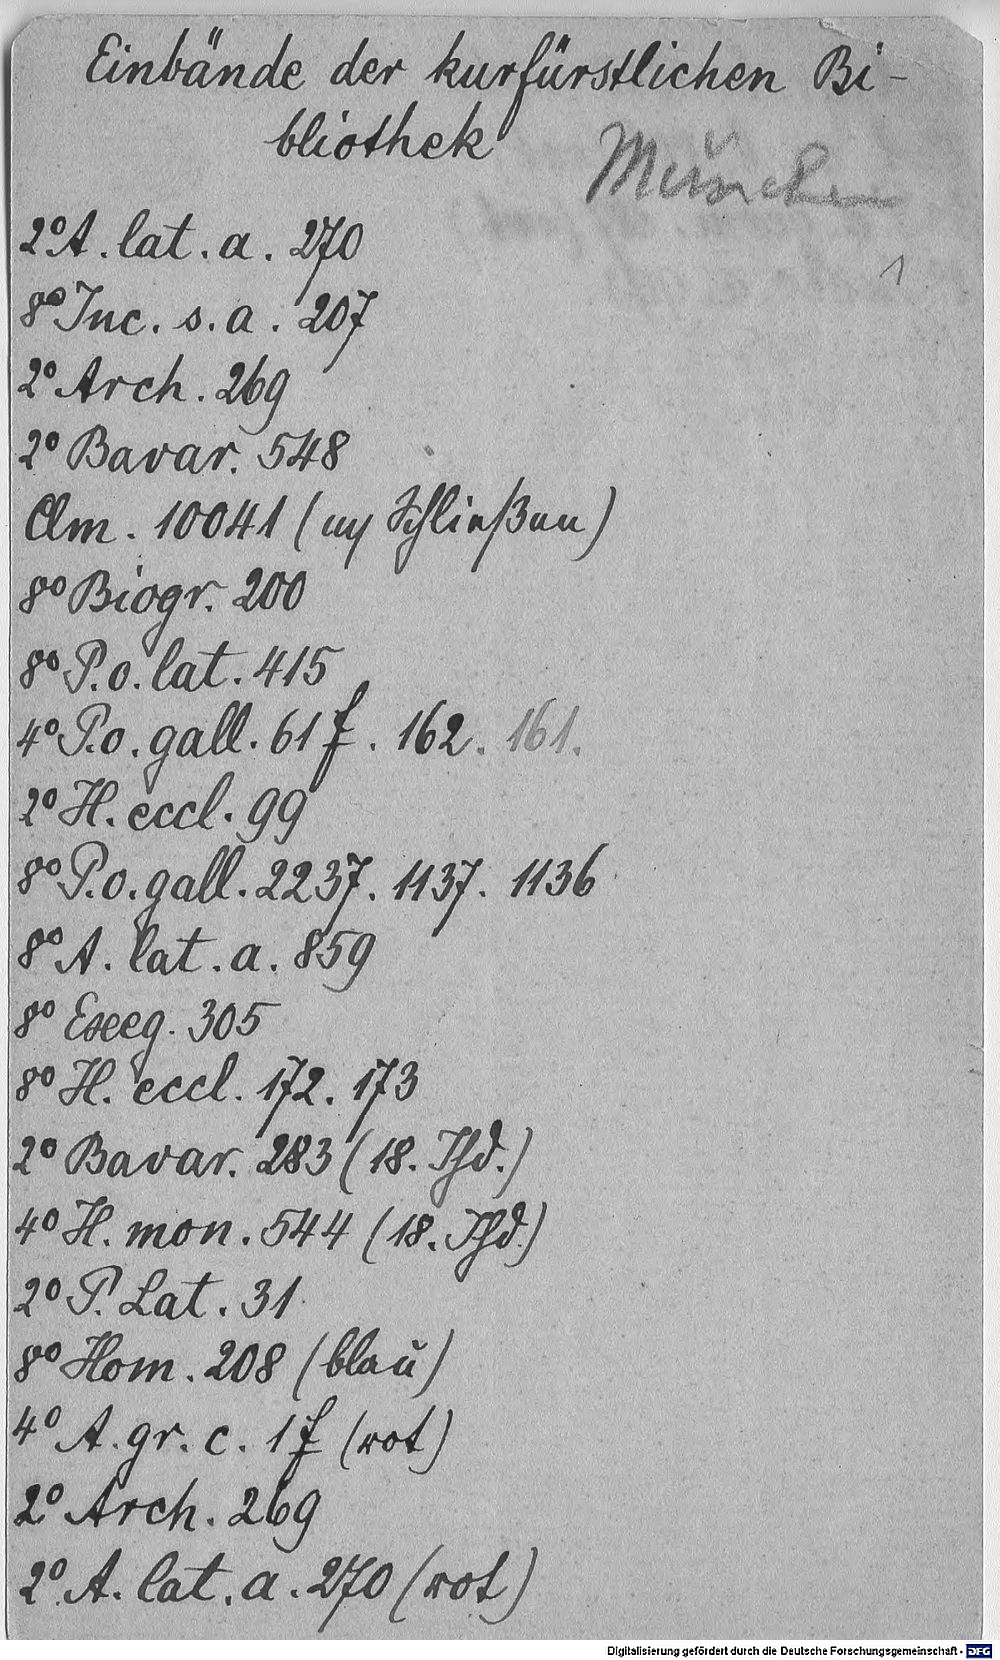 Einbände der kurfürstlichen Bi-
bliothek
München
1
2° A. lat. a. 270
8° Inc. s. a. 207
2° Arch. 269
2° Bavar. 548
Clm. 10041 ( Schließen)
8° Biogr. 200
8° P. o. lat. 415
4° P. o. gall. 61 f. 162. 161.
2° H. eccl. 99
8° P. o. gall. 2237. 1137. 1136
8° A. lat. a. 859
8° Exeg. 305
8° H. eccl. 172. 173
2° Bavar. 283 (18. Jhd.)
4° H. mon. 544 (18. Jhd.)
2° P. Lat. 31
8° Hom. 208 (blau)
4° A. gr. c. 1 f (rot)
2° Arch. 269
2° A. lat. a. 270 (rot)
Digitalisierung gefördert durch die Deutsche Forschungsgemeinschaft - DFG